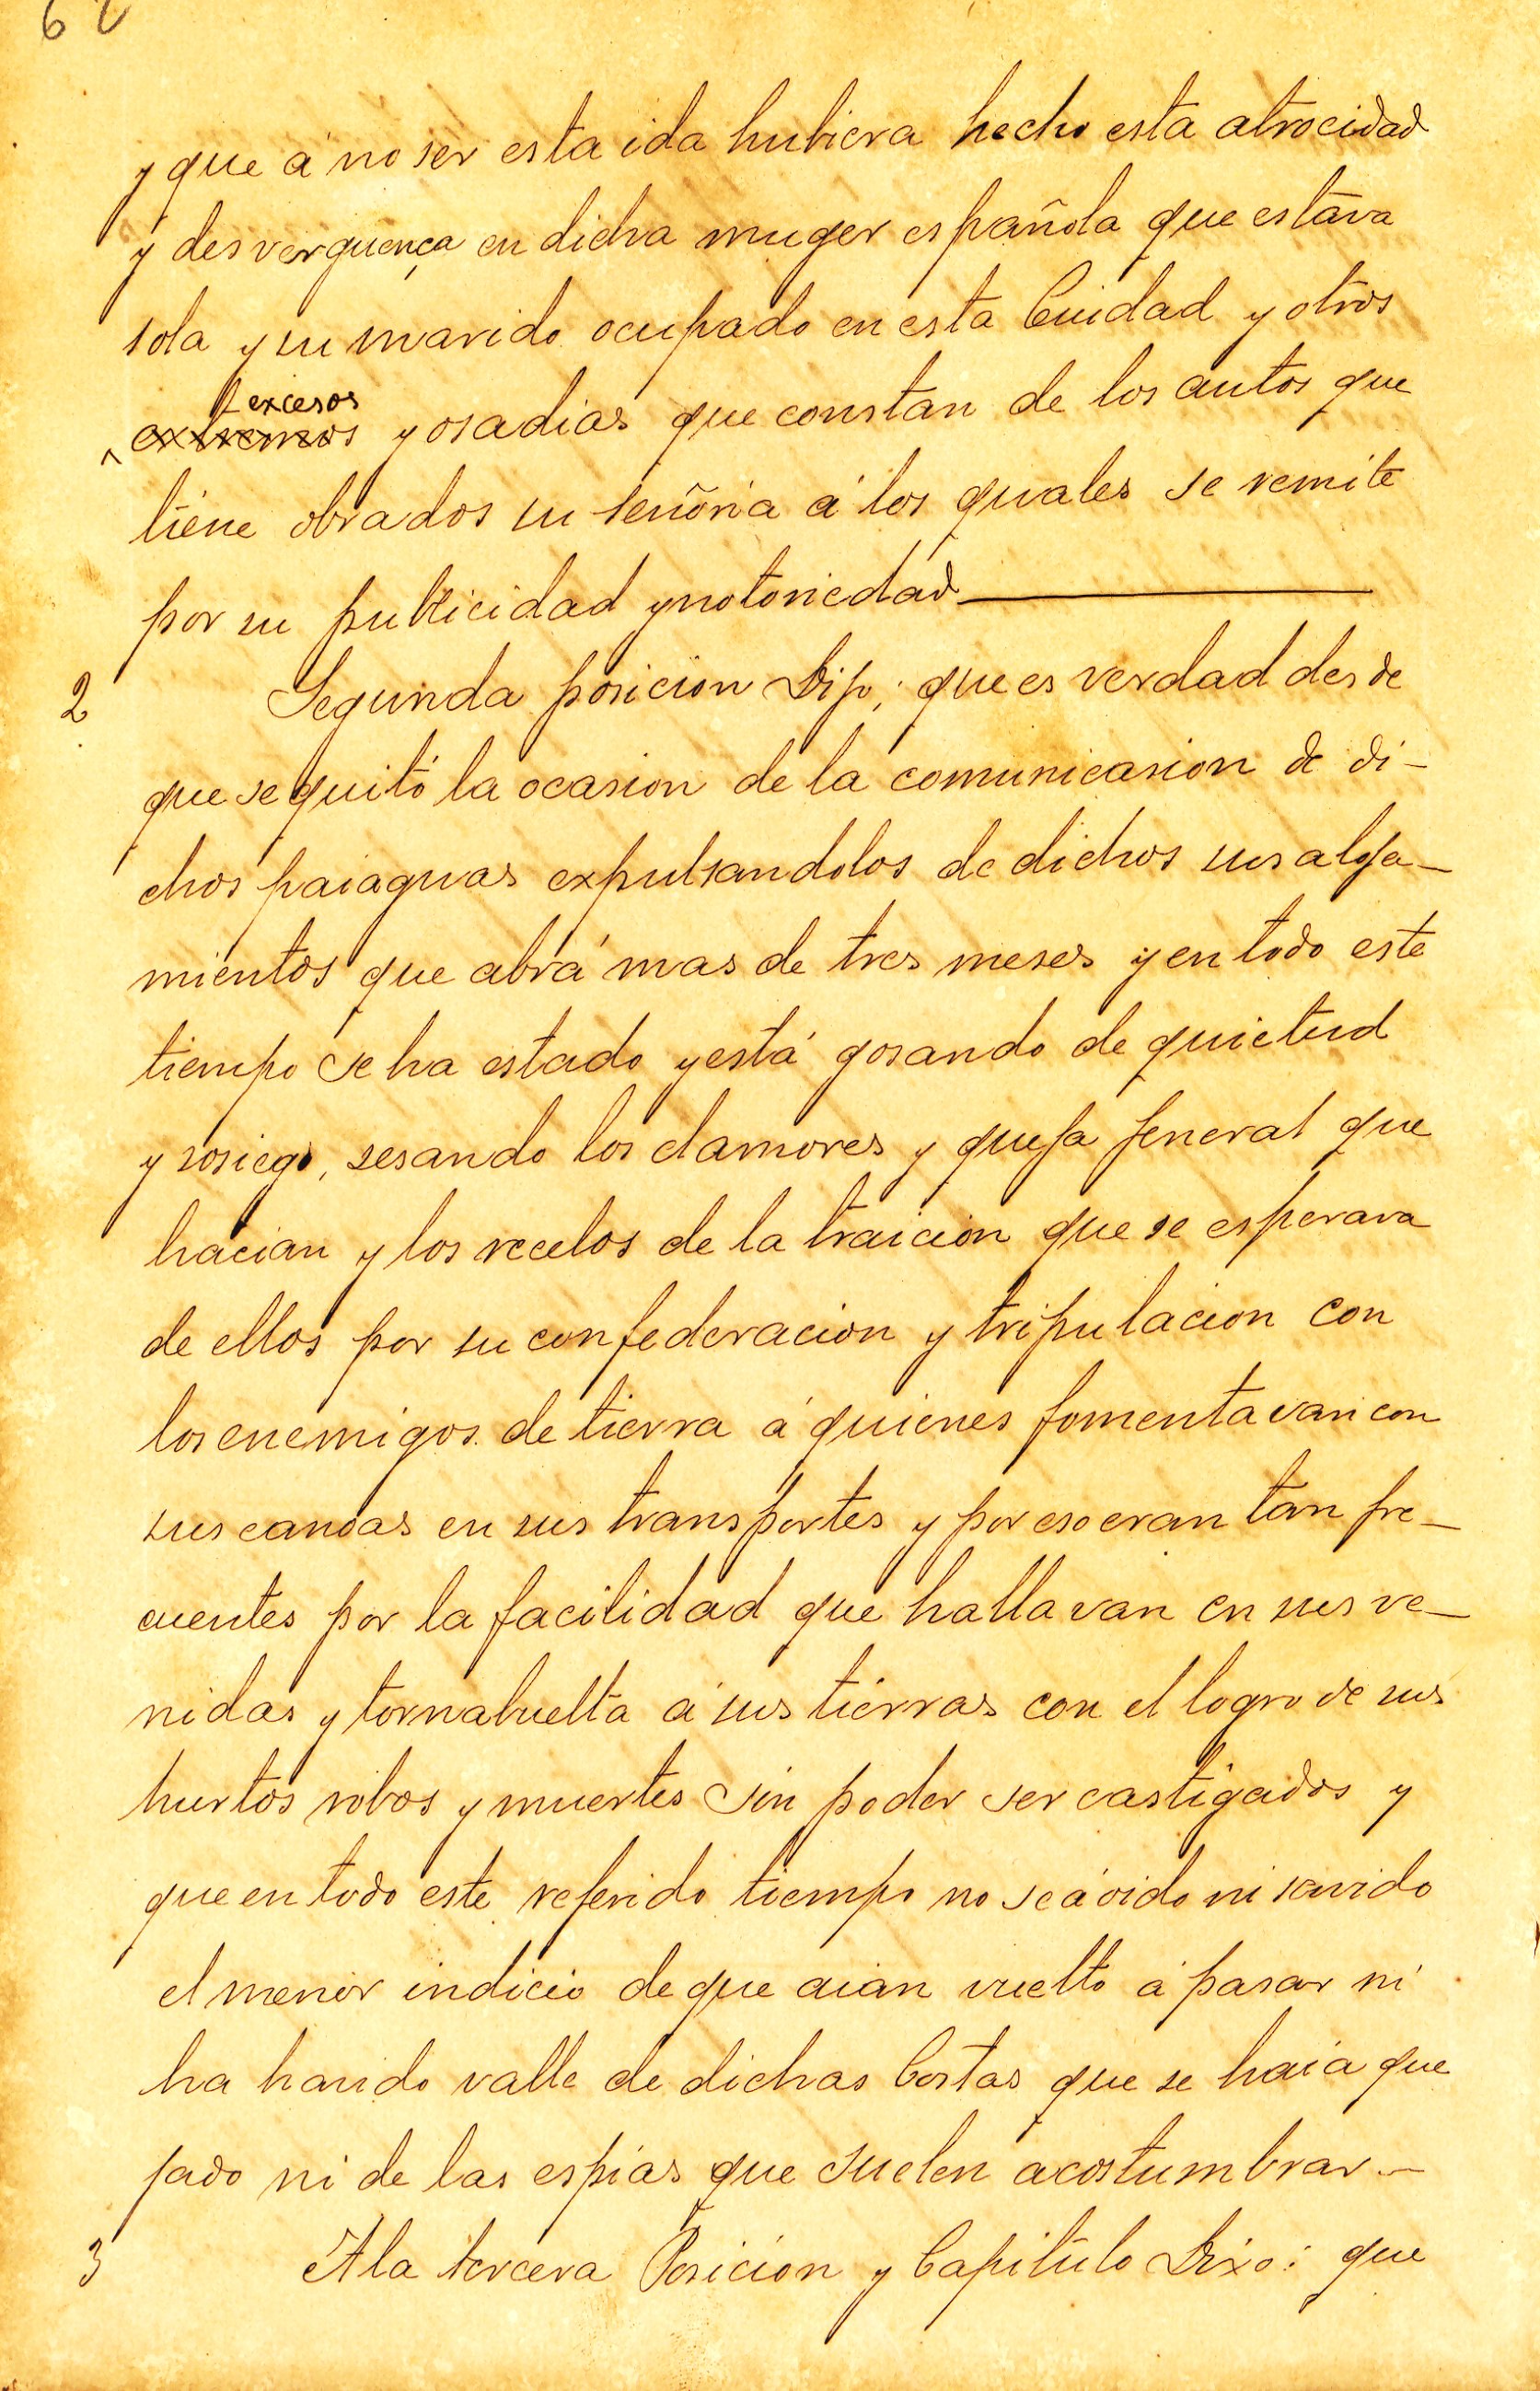 62
y que á no ser esta ida hubiera hecho esta atrocidad
y desverguença en dicha muger española que estava
sola y su marido ocupado en esta Ciudad y otros
excesos
extremos y osadias que constan de los autos que
tiene obrados su señoria á los quales se remite
por su publicidad y notoriedad
2 Segunda posicion Dijo; que es verdad desde
que se quitó la ocasion de la comunicasion de di-
chos paiaguas expulsandolos de dichos sus aloja-
mientos que abrá mas de tres meses y en todo este
tiempo se ha estado y está gosando de quietud
y sosiego, sesando los clamores y queja jeneral que
hacian y los recelos de la traicion que se esperava
de ellos por su confederacion y tripulacion con
los enemigos de tierra á quienes fomentavan con
sus canoas en sus transportes y por eso eran tan fre-
cuentes por la facilidad que hallavan en sus ve-
nidas y tornabuelta á sus tierras con el logro de sus
hurtos robos y muertes sin poder ser castigados y
que en todo este referido tiempo no se á oido ni savido
el menor indicio de que aian vuelto á pasar ni
ha havido valle de dichas Costas que se haia que
jado ni de las espias que suelen acostumbrar.-
3 A la tercera Posicion y Capitulo Dixo: que